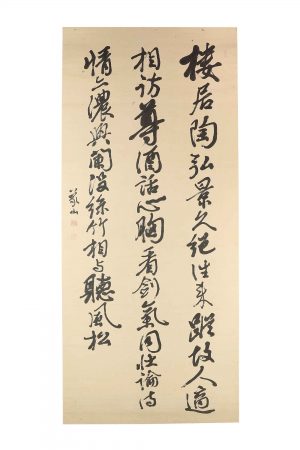 楼居陶弘景久絶往来蹤故人適
相訪尊酒話心胸看劍氣同壮論詩
情亦濃興闌没絲竹相与聽風松
山